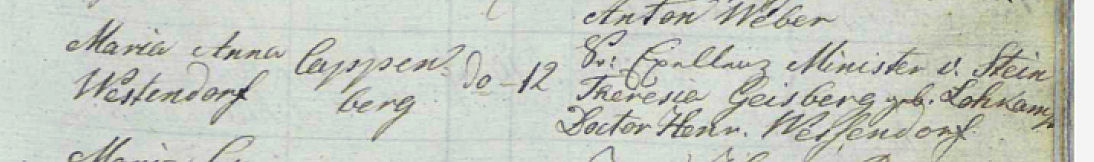 Anton Weber
Maria Anna Cappen= Sr: Exellenz Minister v. Stein
Westendorf berg do - 12 Theresia Geisberg geb. Lohkamp
Doctor Henr. Westendorf
Maria